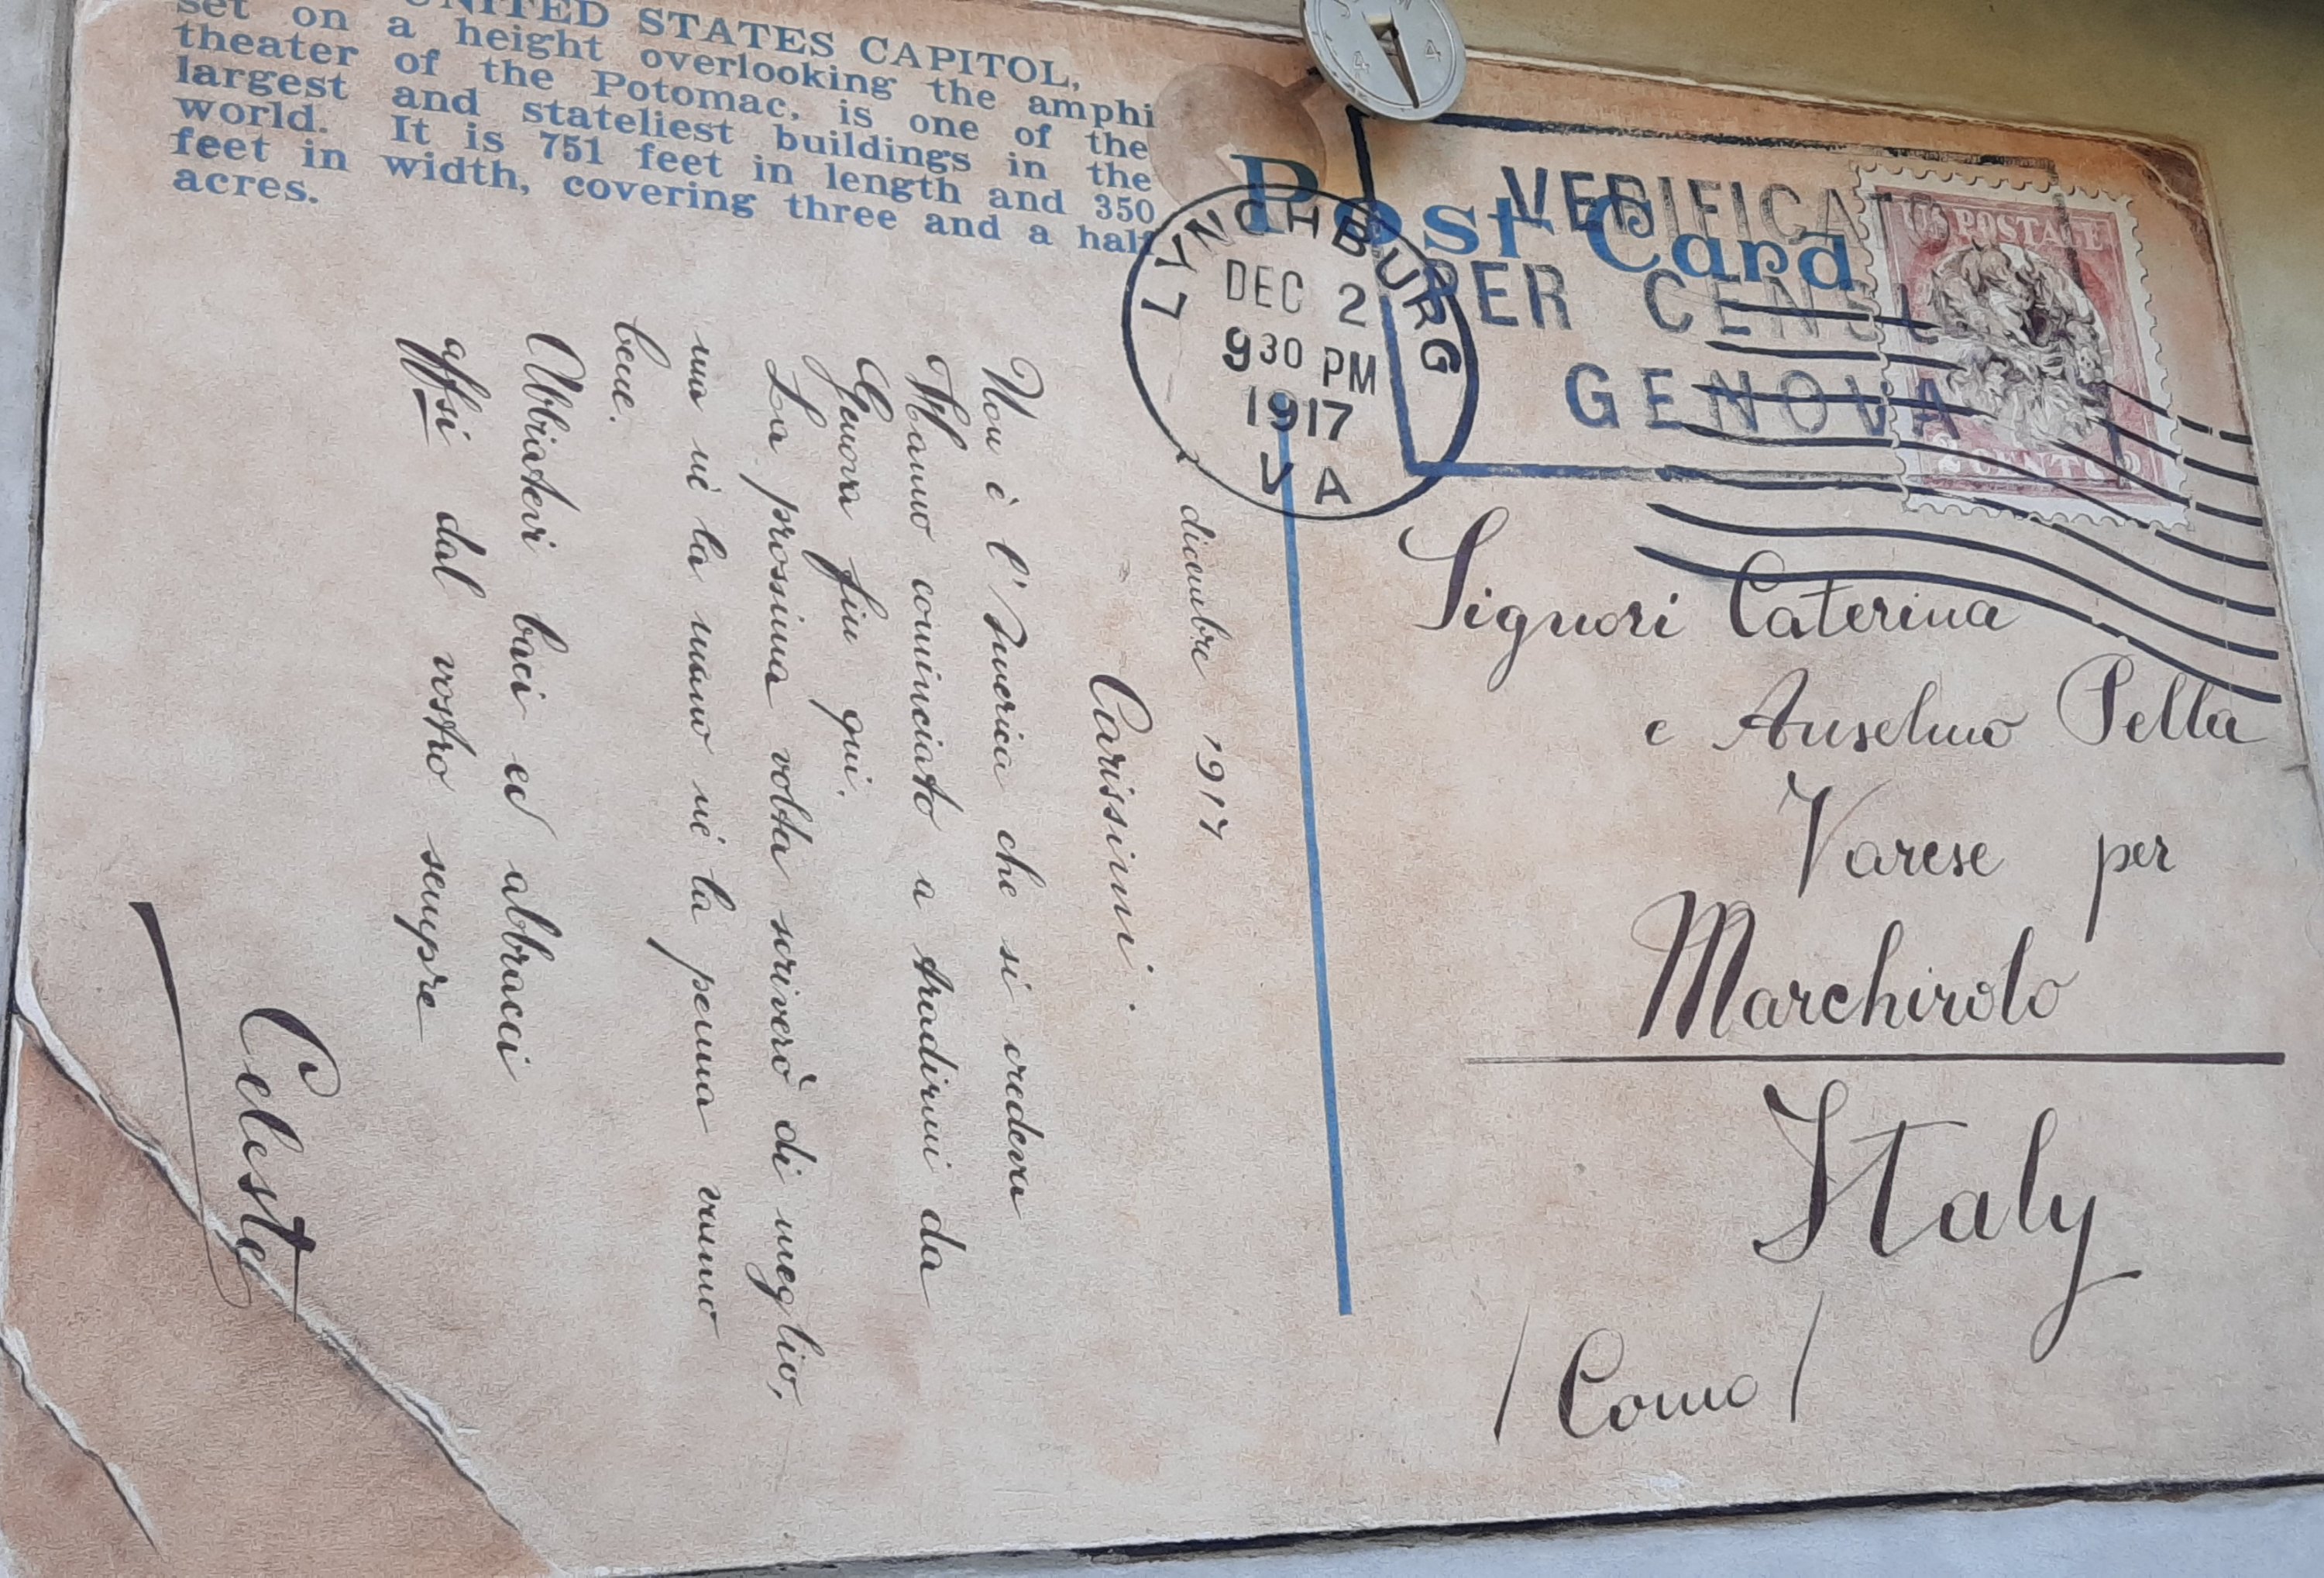 UNITED STATES CAPITOL,
set on a height overlooking the amphi
theater of the Potomac, is one of the
largest and stateliest buildings in the
world. It is 751 feet in length and 350
feet in width, covering three and a half
acres.
Post Card
LYNCHBURG
DEC 2
930 PM
1917
VA
VERIFICATO
PER CENSU
GENOVA
U.S. POSTAGE
2 CENTS 2
dicembre 1917
Carissimi.
Non è l'America che si credeva
Hanno cominciato a tradirmi da
Genova fin qui.
La prossima volta scriverò di meglio,
ma nè la mano nè la penna vanno
bene.
Abbiatevi baci ed abbracci
affsi dal vostro sempre
Celeste
Signori Caterina
e Anselmo Pella
Varese per
Marchirolo
Italy
/Como/